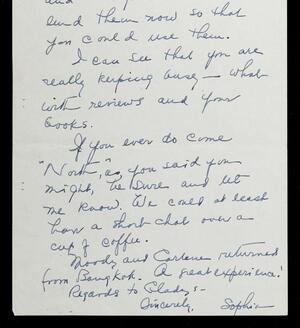 and
send them now so that
you could use them.
I can see that you are
really keeping busy — what
with reviews and your
books.
If you ever do come
"North", as you said you
might, be sure and let
me know. We could at least
have a short chat over a
cup of coffee.
Moody and Carlene returned
from Bangkok. A great experience!
Regards to Gladys -
Sincerely, Sophia